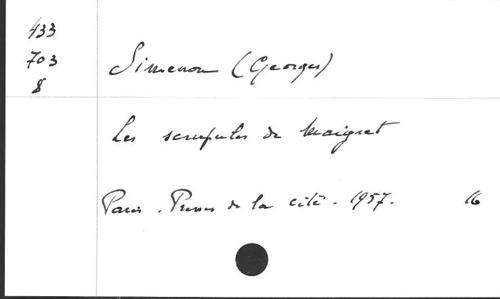 433
703
8
Simenon (Georges)
Les scrupules de Maigret
Paris. Presses de la cité. 1957. 16